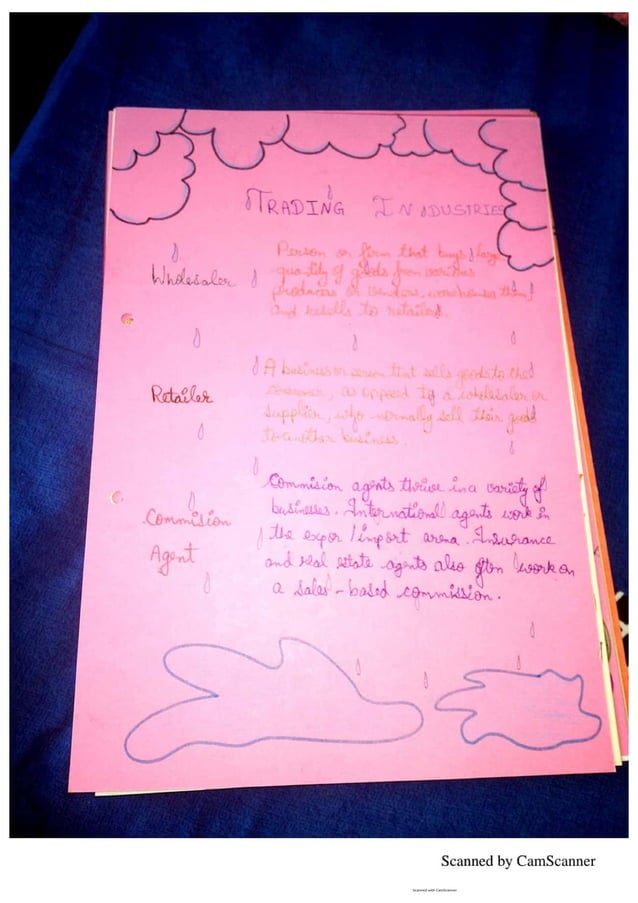 TRADING INDUSTRIES
Wholesaler
Person or firm that buys large
quantity of goods from various
producers or vendors, warehouses them,
and resells to retailers.
Retailer
A business or person that sells goods to the
consumer, as opposed to a wholesaler or
supplier, who normally sell their goods
to another business.
Commision
Agent
Commision agents thrive in a variety of
businesses. International agents work in
the expor / import arena. Insurance
and real estate agents also often work on
a sales - based commission.
Scanned by CamScanner
Scanned with CamScanner